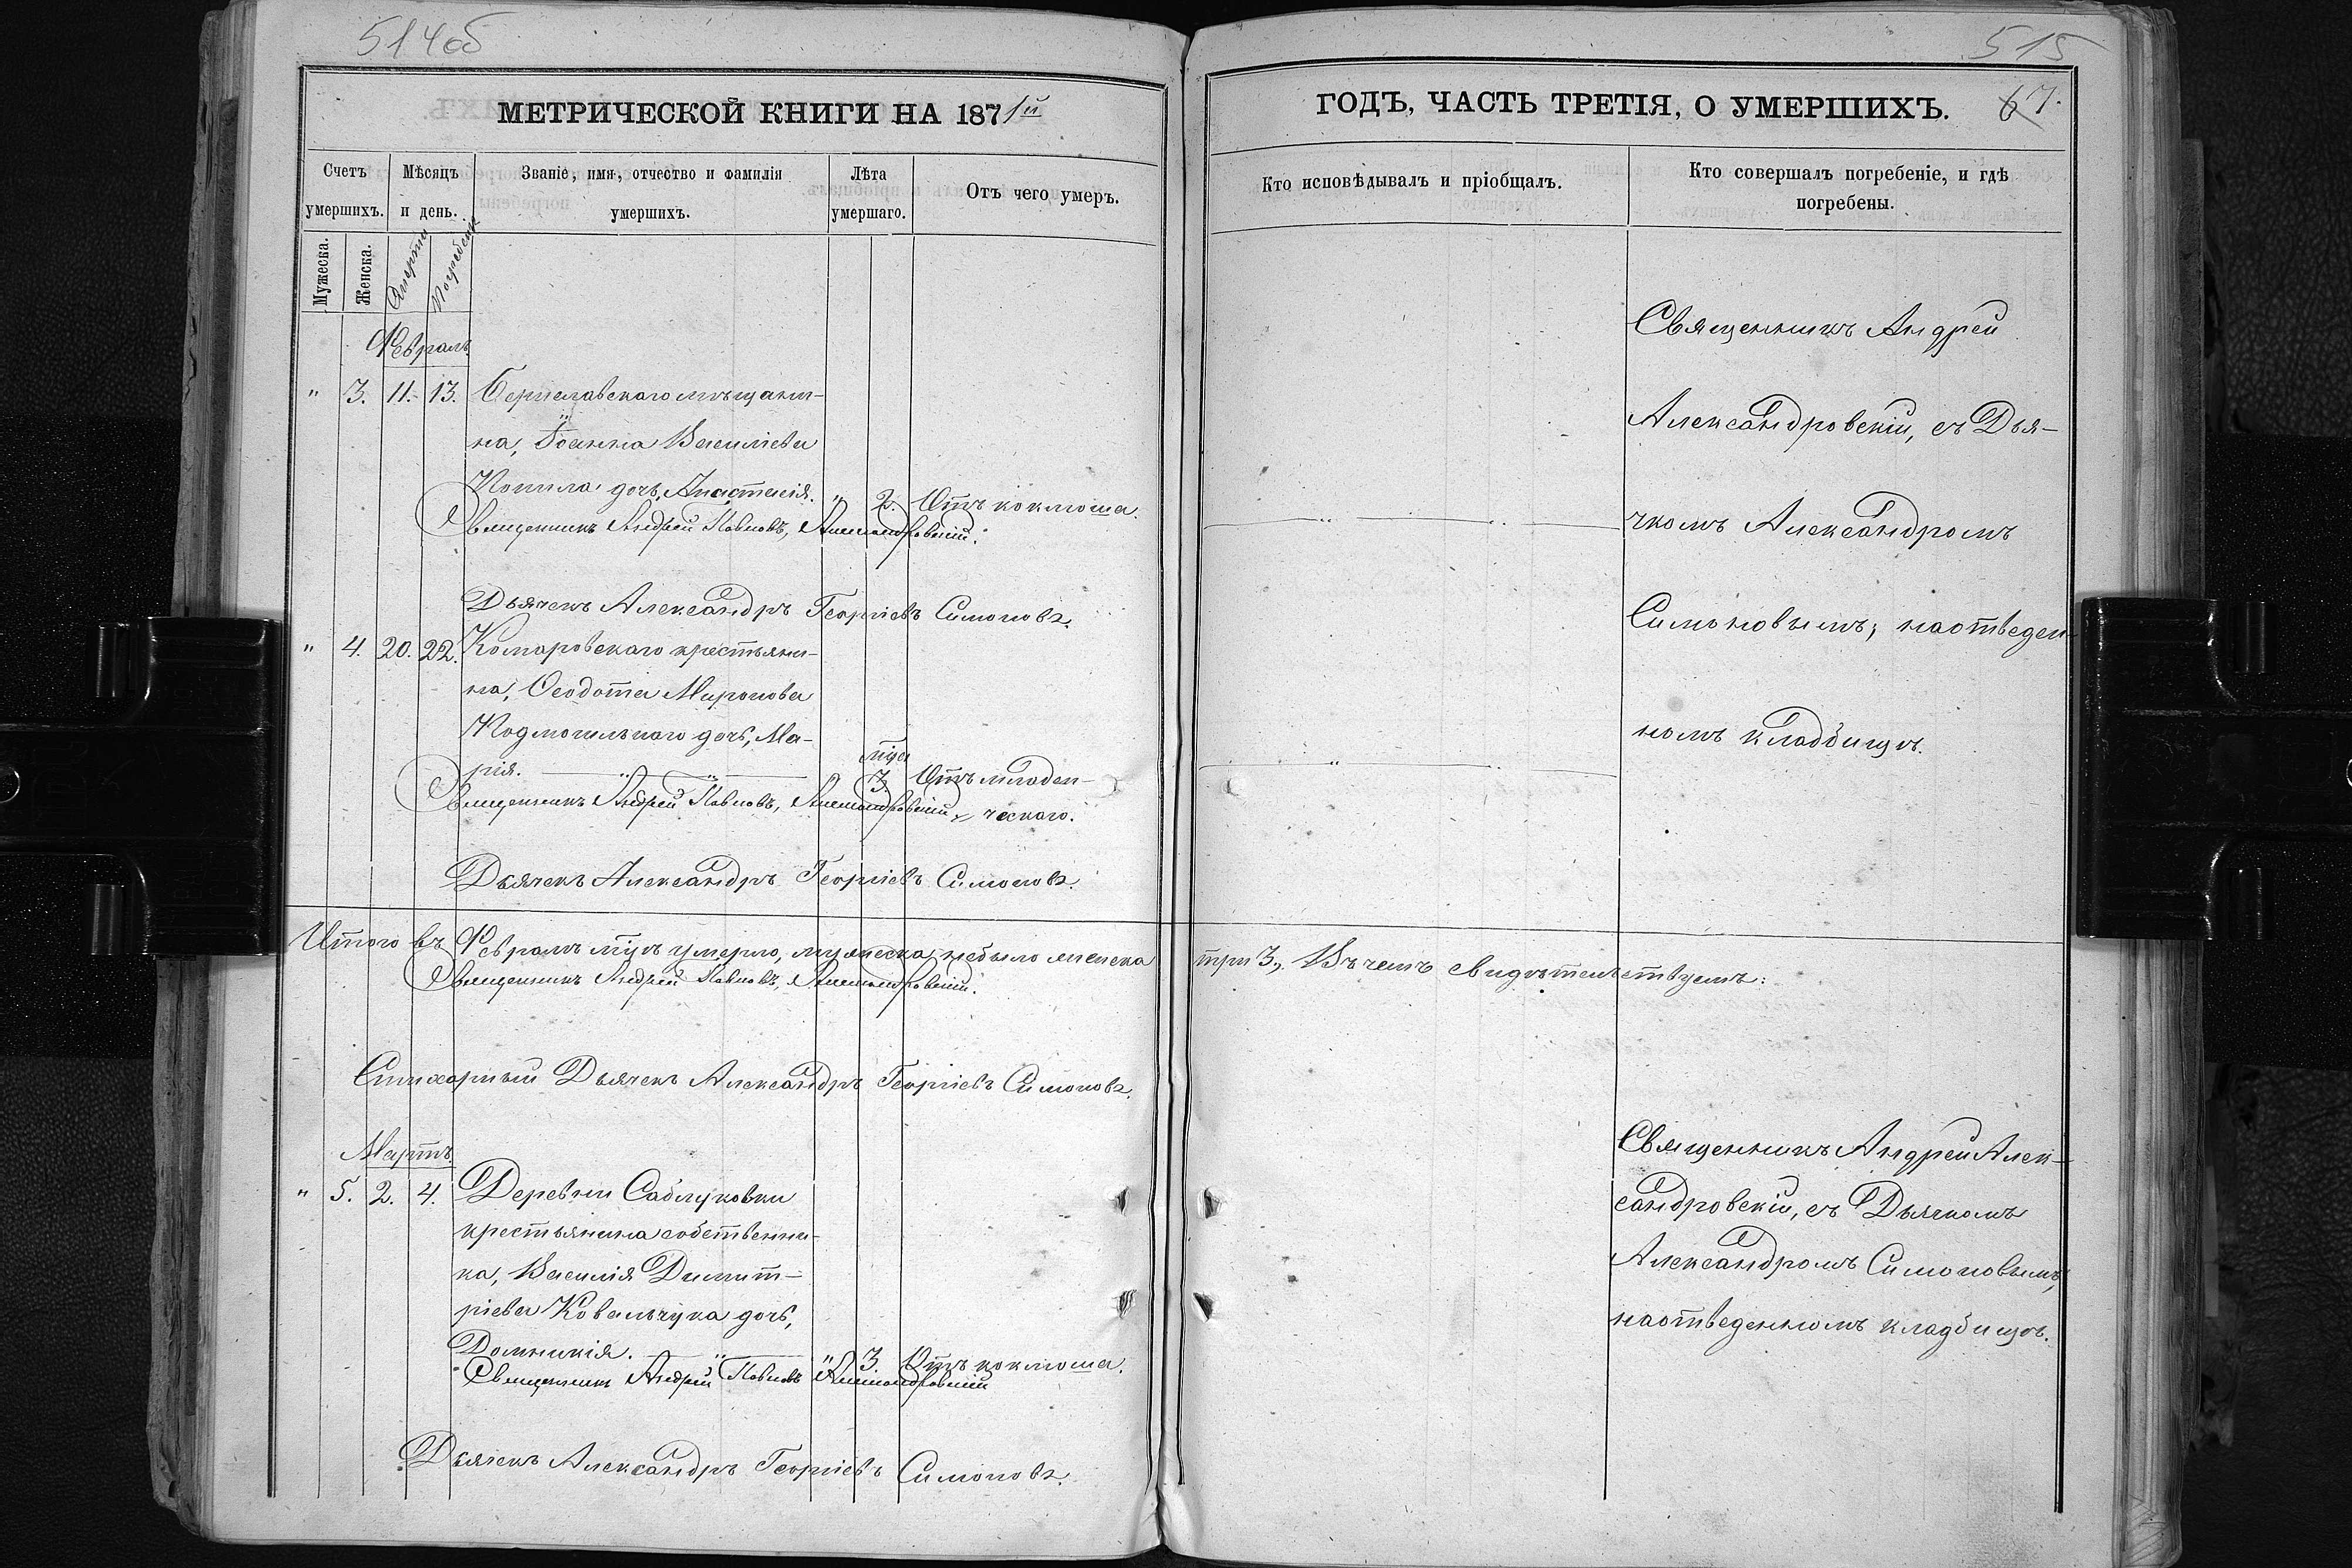 514об
МЕТРИЧЕСКОЙ КНИГИ НА 1871й
Счетъ умершихъ.
Мѣсяцъ и день.
Званіе, имя, отчество и фамилія умершихъ.
Лѣта умершаго.
Отъ чего умеръ.
Мужеска.
Женска.
Смерти
Погребенія
Февраль.
" 3. 11. 13. Бериславскаго мѣщани-
на, Іоанна Василіева
Копила дочь, Анастасія. " 2. Отъ коклюша.
Священникъ Андрей Павловъ, Александровскій.
Дьячекъ Александръ Георгіевъ Симоновъ.
" 4. 20. 22. Комаровскаго крестьяни-
на, Ѳеодота Миронова
Подмогильнаго дочь, Ма-
рія. мца 3. Отъ младен-
Священникъ Андрей Павловъ, Александровскій, ческаго.
Дьячекъ Александръ Георгіевъ Симоновъ.
Итого въ Февралѣ мцѣ умерло, мужеска небыло женска
Священникъ Андрей Павловъ, Александровскій.
Стихарный Дьячекъ Александръ Георгіевъ Симоновъ.
Мартъ.
" 5. 2. 4. Деревни Саблуковки
крестьянина собственни-
ка, Василія Димит-
ріева Ковальчука дочь,
Домникія. " 3. Отъ коклюша.
Священникъ Андрей Павловъ Александровскій
Дьячекъ Александръ Георгіевъ Симоновъ.
515
ГОДЪ, ЧАСТЬ ТРЕТІЯ, О УМЕРШИХЪ. 67.
Кто исповѣдывалъ и пріобщалъ.
Кто совершалъ погребеніе, и гдѣ
погребены.
Священникъ Андрей
Александровскій, съ Дья-
чкомъ Александромъ
Симоновымъ, наотведен-
номъ кладбищѣ.
три 3, Въ чемъ свидѣтельствуемъ:
Священникъ Андрей Алек-
сандровскій, съ Дьячкомъ
Александромъ Симоновымъ,
наотведенномъ кладбищѣ.